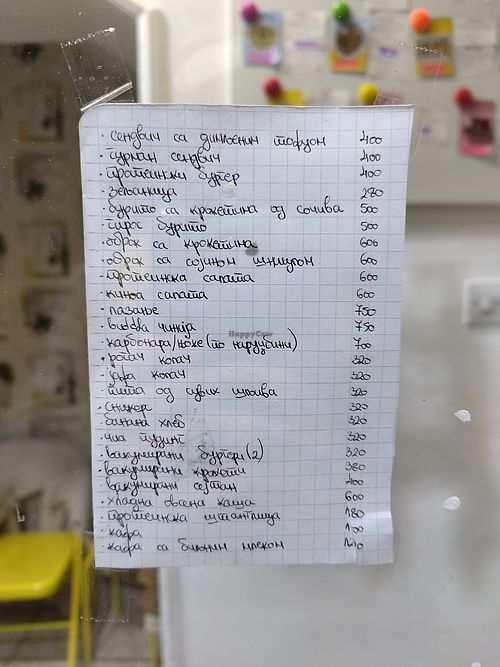 · сендвич са димљеним тофуом 400
· гурман сендвич 400
· протеински бургер 400
· зељаница 270
· бурито са крокетима од сочива 500
· гирос бурито 500
· оброк са крокетима 600
· оброк са сојином шницлом 600
· протеинска салата 600
· киноа салата 600
· лазање 750
· будва чинија 750
· карбонара/њоке (по наруџбини) 700
· рогач колач 320
· јафа колач 320
· пита од сувих шљива 320
· сникерс 320
· банана хлеб 320
· чиа пудинг 320
· вакумирани бургери (2) 320
· вакумирани крокети 380
· вакумирани сејтан 400
· хладна овсена каша 600
· протеинска штанглица 180
· кафа 100
· кафа са биљним млеком
HappyCow